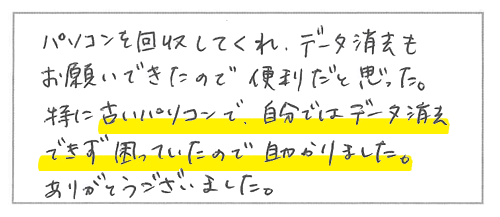 パソコンを回収してくれ、データ消去も
お願いできたので便利だと思った。
特に古いパソコンで、自分ではデータ消去
できず困っていたので助かりました。
ありがとうございました。